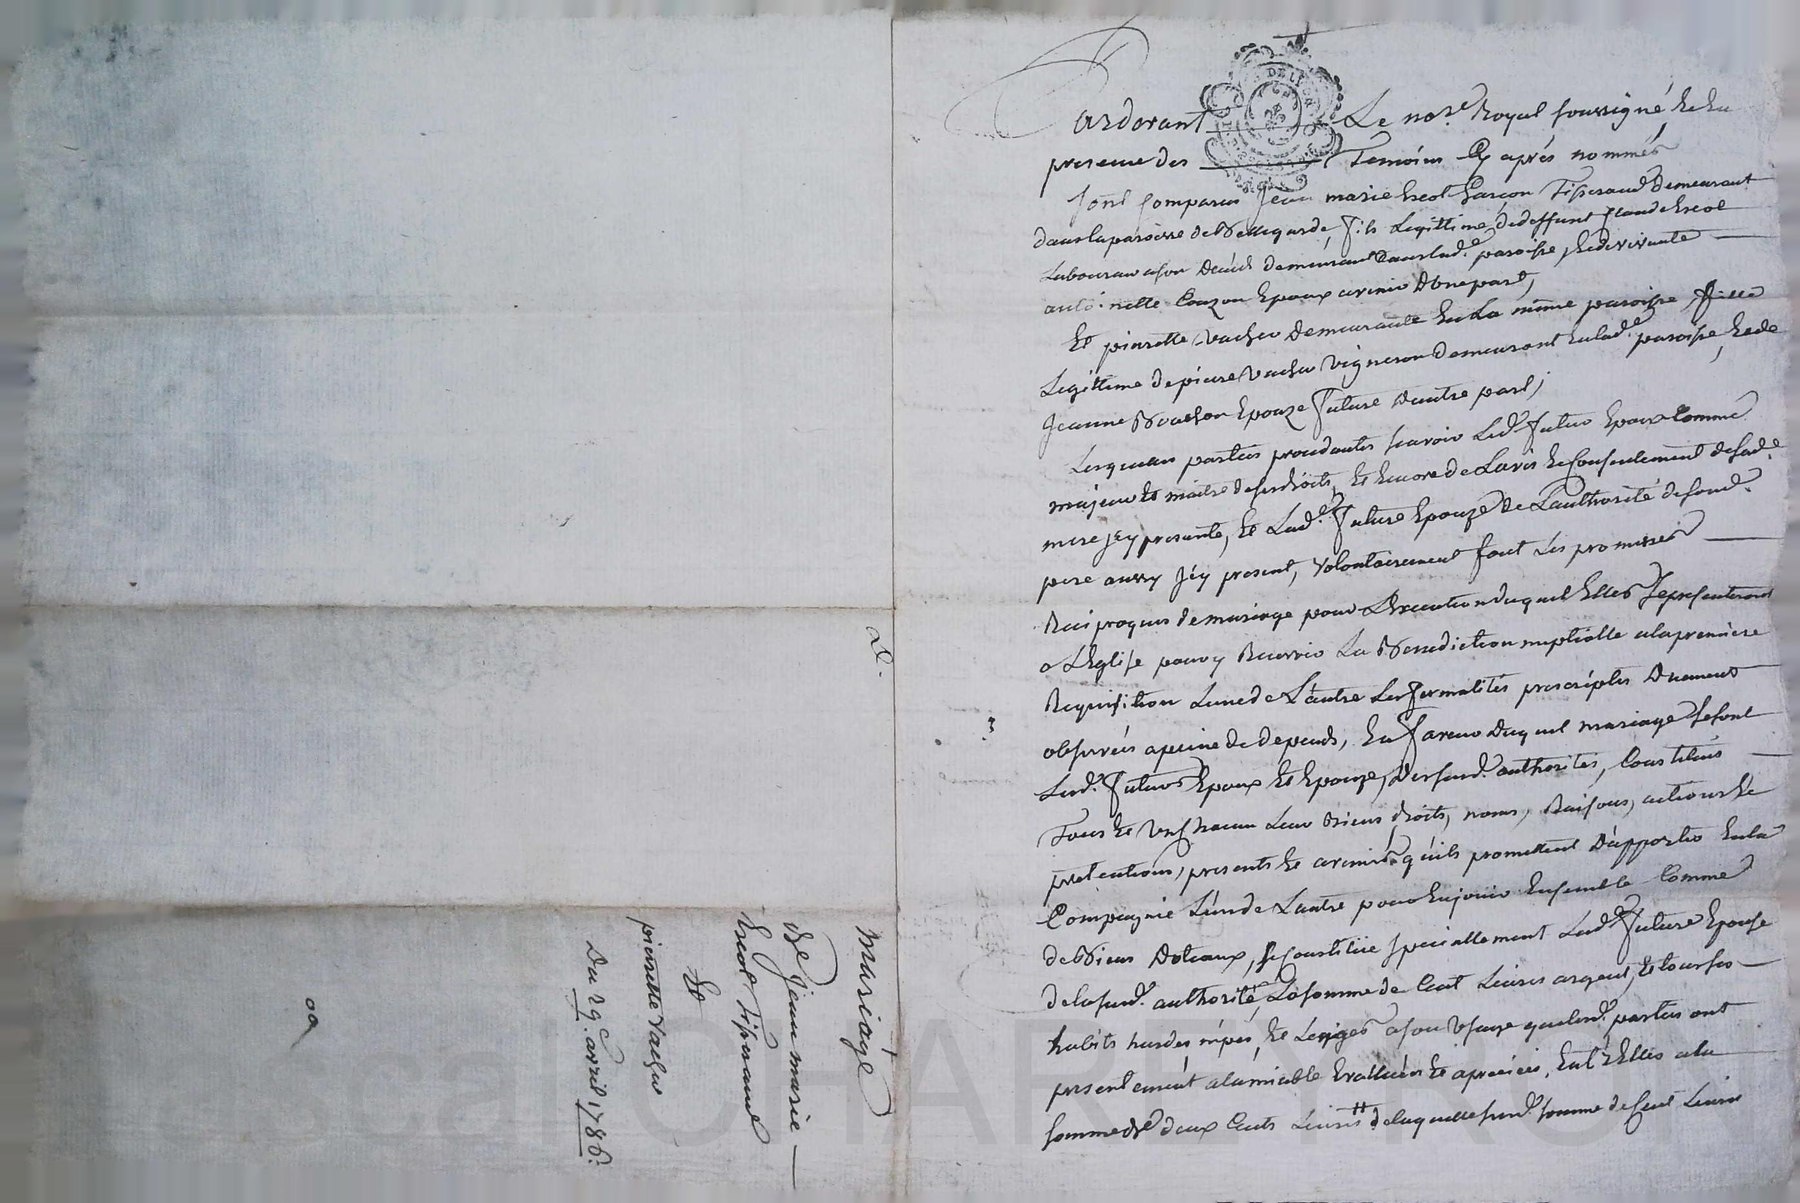 Pardevant Le no.re Royal soussigné Et En
presence des Temoins Cy après nommés
sont Comparus Jean marie Escot Garçon Tisserand demeurant
dans la paroisse de Bellegarde, fils Legittime de deffunt Claude Escot
Laboureur a son deceds demeurant dans lad.e paroisse, Et de vivante
antoinette Couzon Epoux avenir d'Une part,
Et pierrette vacher demeurante En La même paroisse, fille
Legittime de pierre vacher vigneron demeurant En lad.e paroisse, Et de
Jeanne Epouze future d'autre part,
Lesquelles parties procedantes scavoir Led.t futur Epoux Comme
majeur Et maitre de ses droits, Et Encore de L'avis Et Consentement de sad.e
mere icy presente, Et Lad.e future Epouze de L'authorité de sond.t
pere aussy icy present, volontairement font Les promesses
Reciproques de mariage pour L'Execution duquel Elles se presenteront
a L'Eglise pour y Recevoir La Benediction nuptialle a la première
Requisition L'une de L'autre Les formalités prescriptes duement
observées a peine de depends, En faveur duquel mariage se sont
Lesd.s futurs Epoux Et Epouze, des susd. authorités, Constitués
Tous Et Un Chacun Leur Biens, droits, noms, Raisons, actions Et
pretentions, presents Et avenirs qu'ils promettent d'apporter En la
Compagnie L'un de L'autre pour En jouir Ensemble Comme
de Biens dotaux, se Constitue specialement Lad.e future Epouse
de la susd.e authorité La somme de Cent Livres argent, Et tous ses
habits hardes nipes, Et Linges a son Usage que lesd. parties ont
presentement a lamiable Evallués Et apreciés, Entre Elles a la
somme de deux Cents Livres de laquelle susd.e somme de Cent Livres
Mariage
De Jean marie
Escot Tisserand
Et
pierrette Vacher
Du 29. avril 1786.